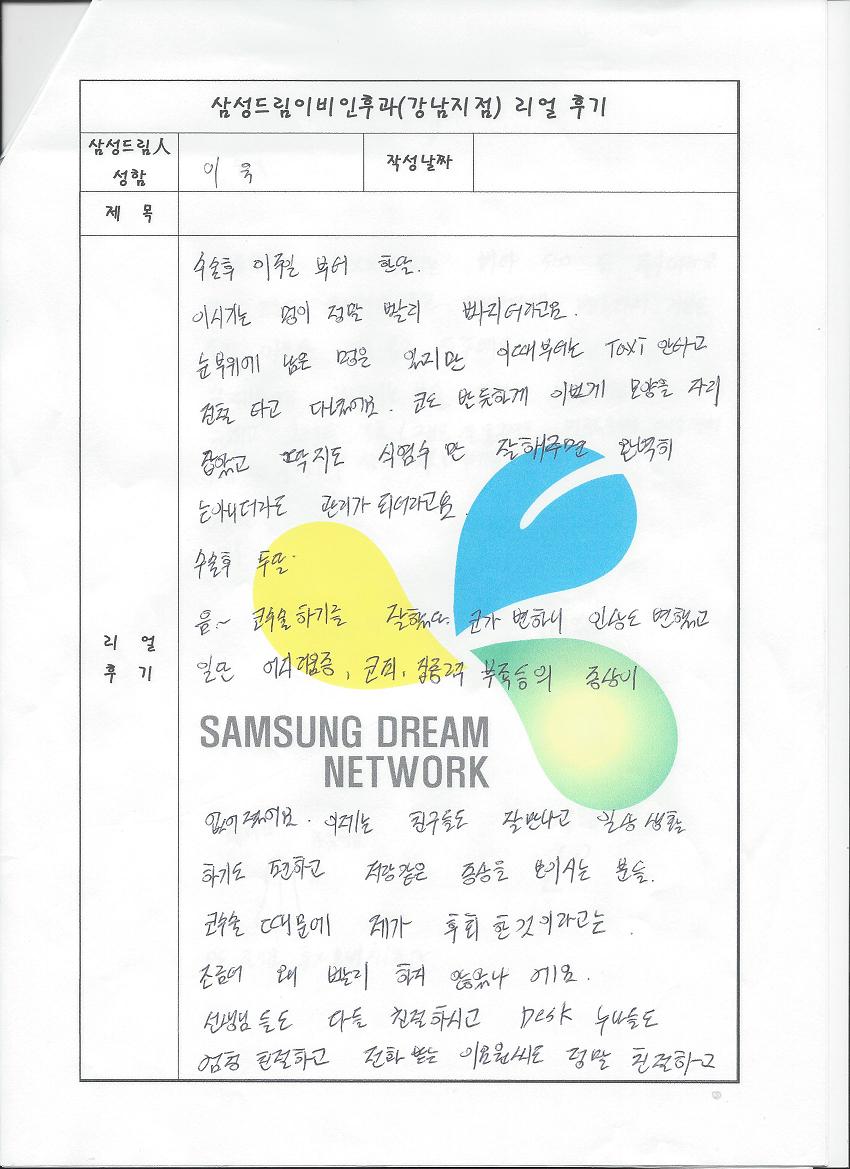 삼성드림이비인후과(강남지점) 리얼 후기
삼성드림人
성함
이 욱
작성날짜
제 목
리 얼
후 기
수술후 이주일 부터 한달.
이시기는 멍이 정말 빨리 빠지더라고요.
눈부위에 남은 멍은 있지만 이때부터는 TaXi 안타고
전철 타고 다녔어요. 코도 반듯하게 이쁘게 모양을 자리
잡았고 딱지도 식염수 만 잘해주면 완벽히
는아니더라도 관리가 되더라고요.
수술후 두달.
음~ 코수술하기를 잘했다. 코가 변하니 인상도 변했고
일단 어지러움증, 코피, 집중력 부족등의 증상이
SAMSUNG DREAM
NETWORK
없어졌어요. 이제는 친구들도 잘만나고 일상 생활
하기도 편하고 저랑같은 증상을 보이시는 분들.
코수술 때문에 제가 후회 한것이라고는 .
조금더 왜 빨리 하지 않았나 에요.
선생님들도 다들 친절하시고 Desk 누나들도
엄청 친절하고 전화 받는 정말 친절하고